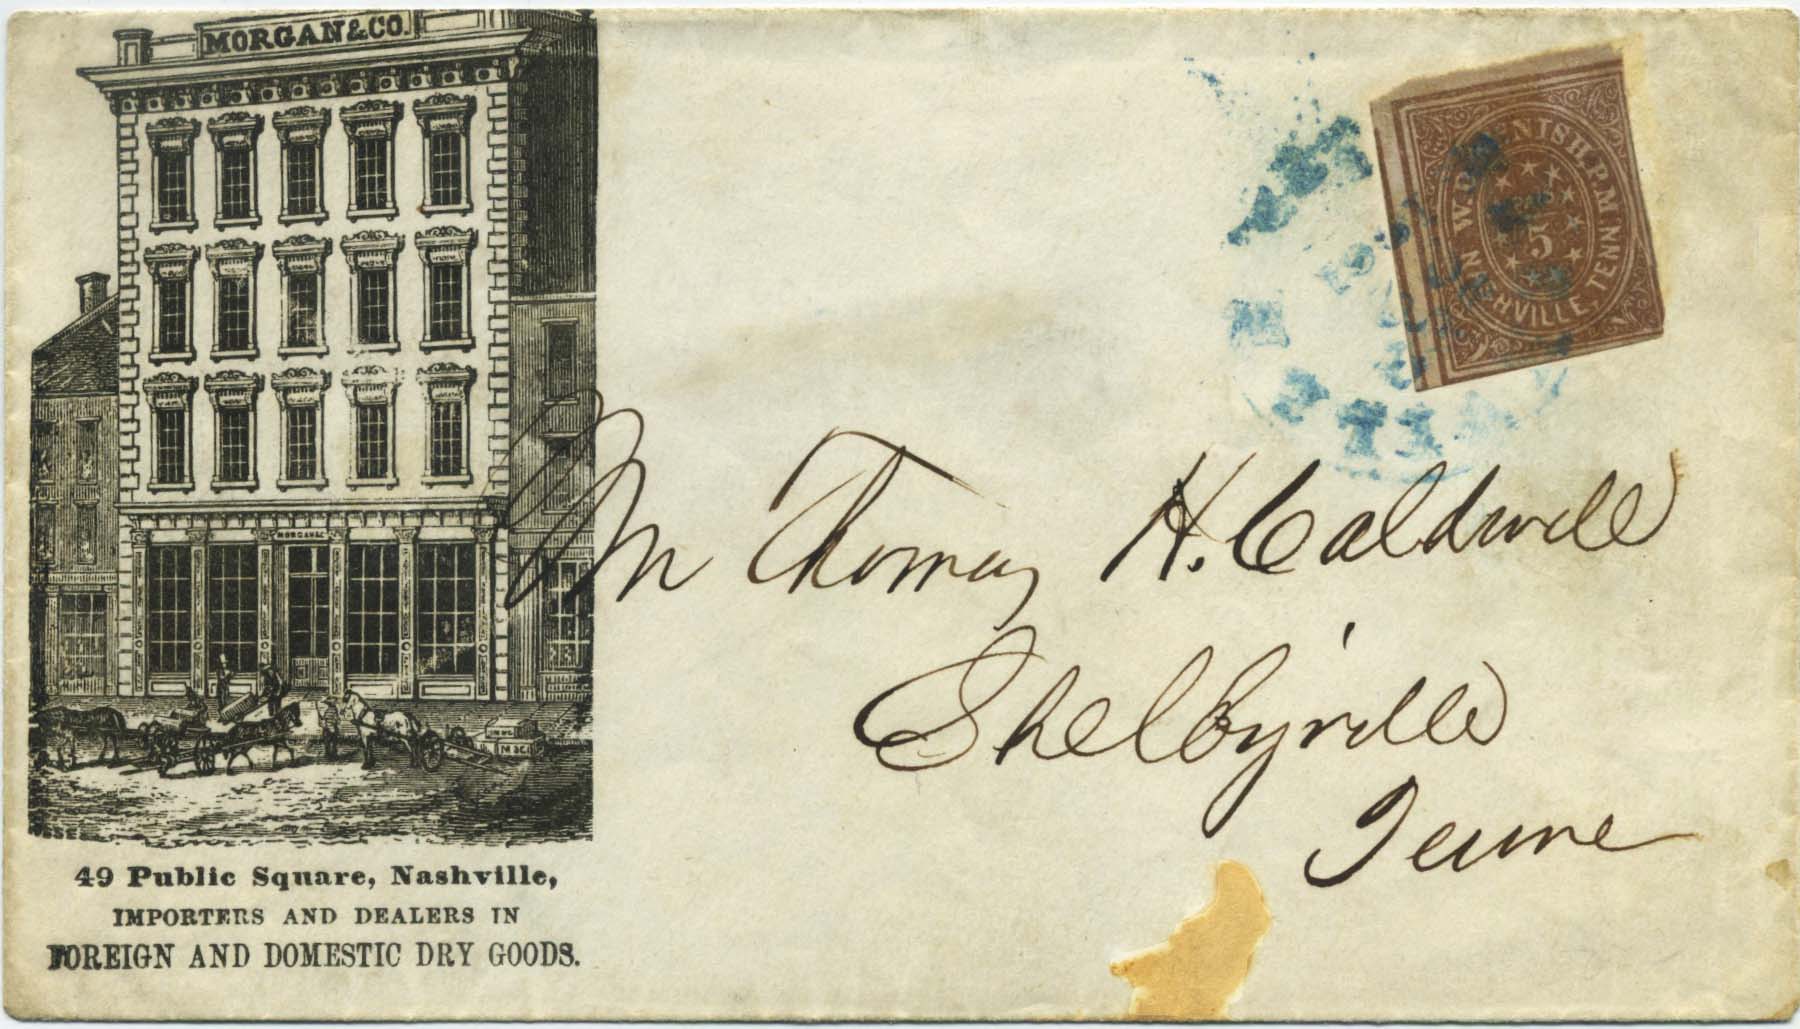 MORGAN & CO.
MORGAN & C
M & C
49 Public Square, Nashville,
IMPORTERS AND DEALERS IN
FOREIGN AND DOMESTIC DRY GOODS.
W.D. M NISH. P.M
5
NASHVILLE, TENN
Mr Thomas H. Caldwell
Shelbyville
Tenne